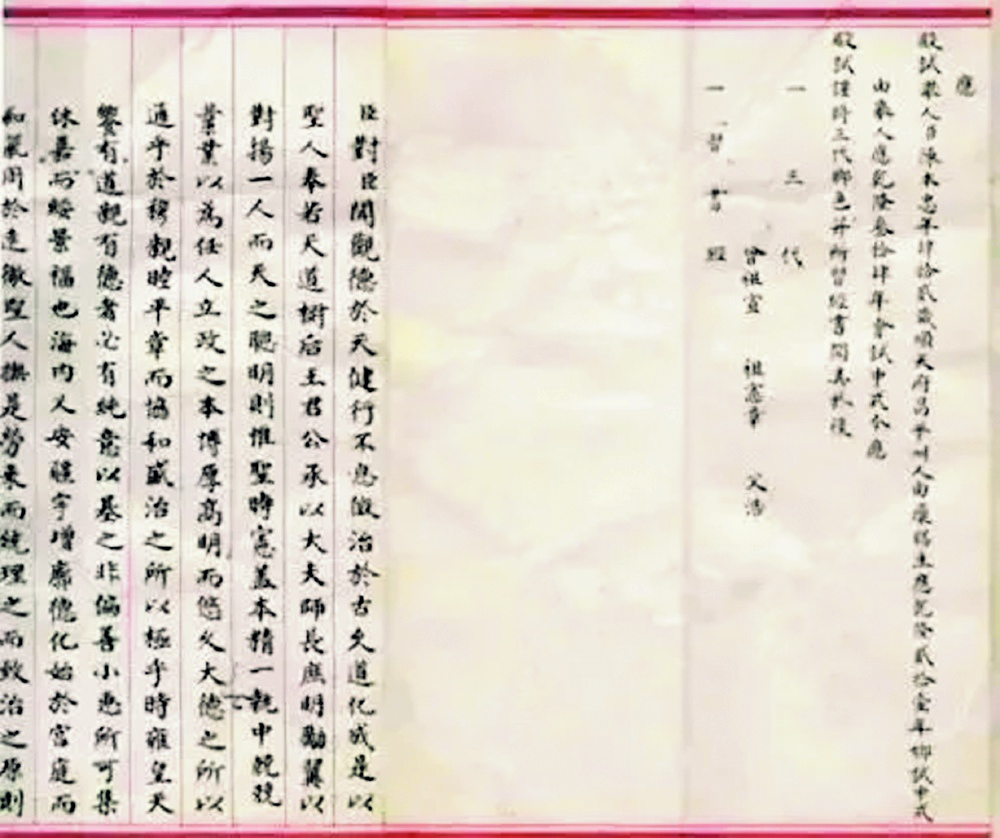 應
殿試舉人臣陳本忠年肆拾貳歲順天府昌平州人由廩膳生應乾隆貳拾壹年鄉試中式
由舉人應乾隆叁拾肆年會試中式今應
殿試謹將三代脚色并所習經書開具於後
一三代
曾祖宣 祖憲章 父浩
一習書經
臣對臣聞觀德於天健行不息徵治於古久道化成是以
聖人奉若天道樹后王君公承以大夫師長庶明勵翼以
對揚一人而天之聰明則惟聖時憲蓋本精一執中兢兢
業業以為任人立政之本博厚高明而悠久大德之所以
通乎於穆觀睦平章而協和盛治之所以極乎時雍皇天
饗有道觀有德者必有純意以基之非偏善小惠所可集
休嘉而綏景福也海內乂安疆宇增廓德化始於宮庭而
和氣周於遠徼聖人撫是勞來而統理之而致治之原則